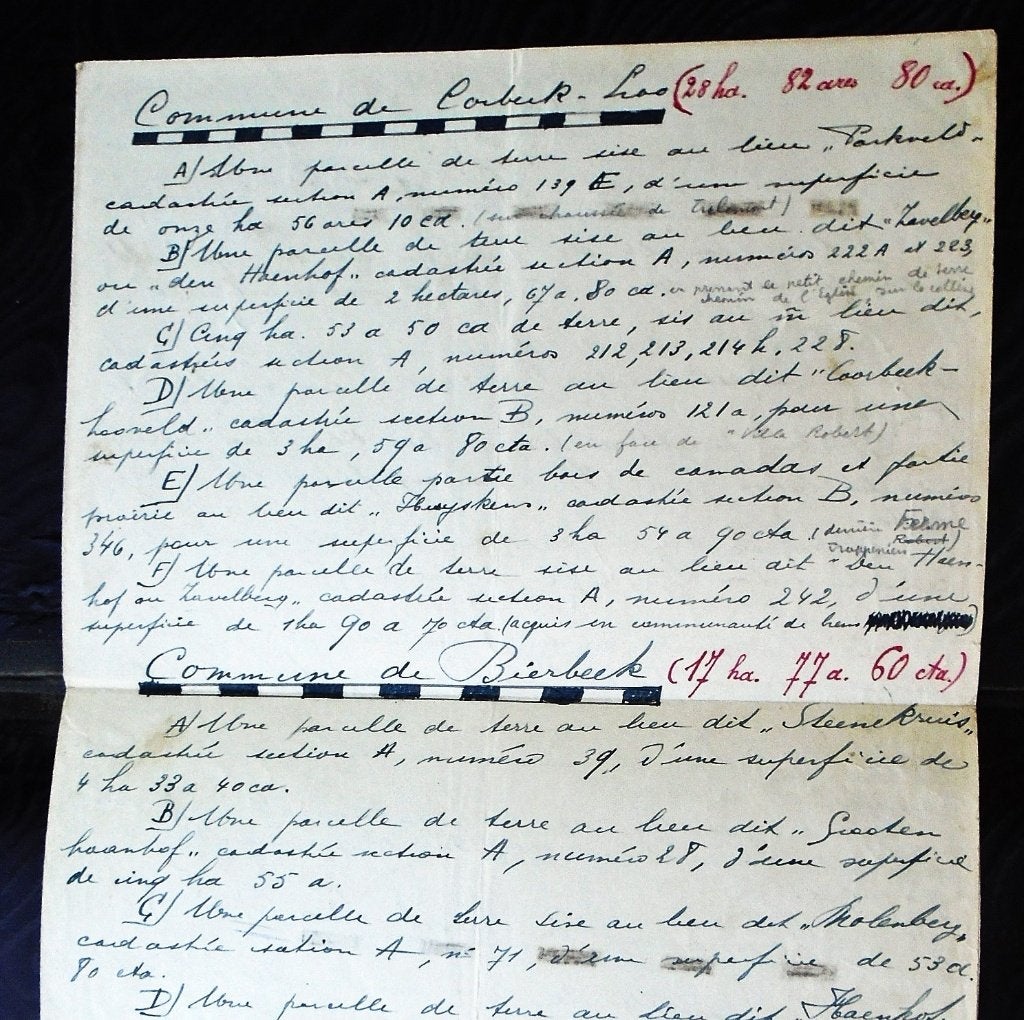 Commune de Corbeek-Loo (28 ha. 82 ares 80 ca.)
A) Une parcelle de terre sise au lieu „Parkveld-
cadastrée section A, numéro 139 E, d'une superficie
de onze ha 56 ares 10 ca. (sur chaussée de Tirlemont)
B) Une parcelle de terre sise au lieu dit „Zavelberg"
ou „den Haenhof" cadastrée section A, numéros 222A et 223,
d'une superficie de 2 hectares, 67 a. 80 ca. en prenant le petit chemin de terre
chemin de l'Eglise sur le
C) Cinq ha. 53 a 50 ca de terre, sis au m̄ lieu dit,
cadastrées section A, numéros 212, 213, 214h, 228.
D) Une parcelle de terre au lieu dit „Corbeek-
looveld„ cadastrée section B, numéros 121a, pour une
superficie de 3 ha, 59 a 80 cta. (en face de "Villa Robert)
E) Une parcelle partie bois de canadas et partie
prairie au lieu dit „Huyskens„ cadastrée section B, numéros
346, pour une superficie de 3 ha 54 a 90 cta. (derrière Ferme
Robert)
F) Une parcelle de terre sise au lieu dit "Den Haen-
hof ou Zavelberg„ cadastrée section A, numéro 242, d'une
superficie de 1 ha 90 a 70 cta. (acquis en communauté de biens )
Commune de Bierbeek (17 ha. 77 a. 60 cta.)
A) Une parcelle de terre au lieu dit „Steenekruis„
cadastrée section A, numéro 39, d'une superficie de
4 ha 33 a 40 ca.
B) Une parcelle de terre au lieu dit „Grooten
haanhof„ cadastrée section A, numéro 28, d'une superficie
de cinq ha 55 a.
C) Une parcelle de terre sise au lieu dit „Molenberg„
cadastrée section A, n° 71, d'une superficie de 53 a.
80 cta.
D) Une parcelle de terre au lieu dit „Haenhof.